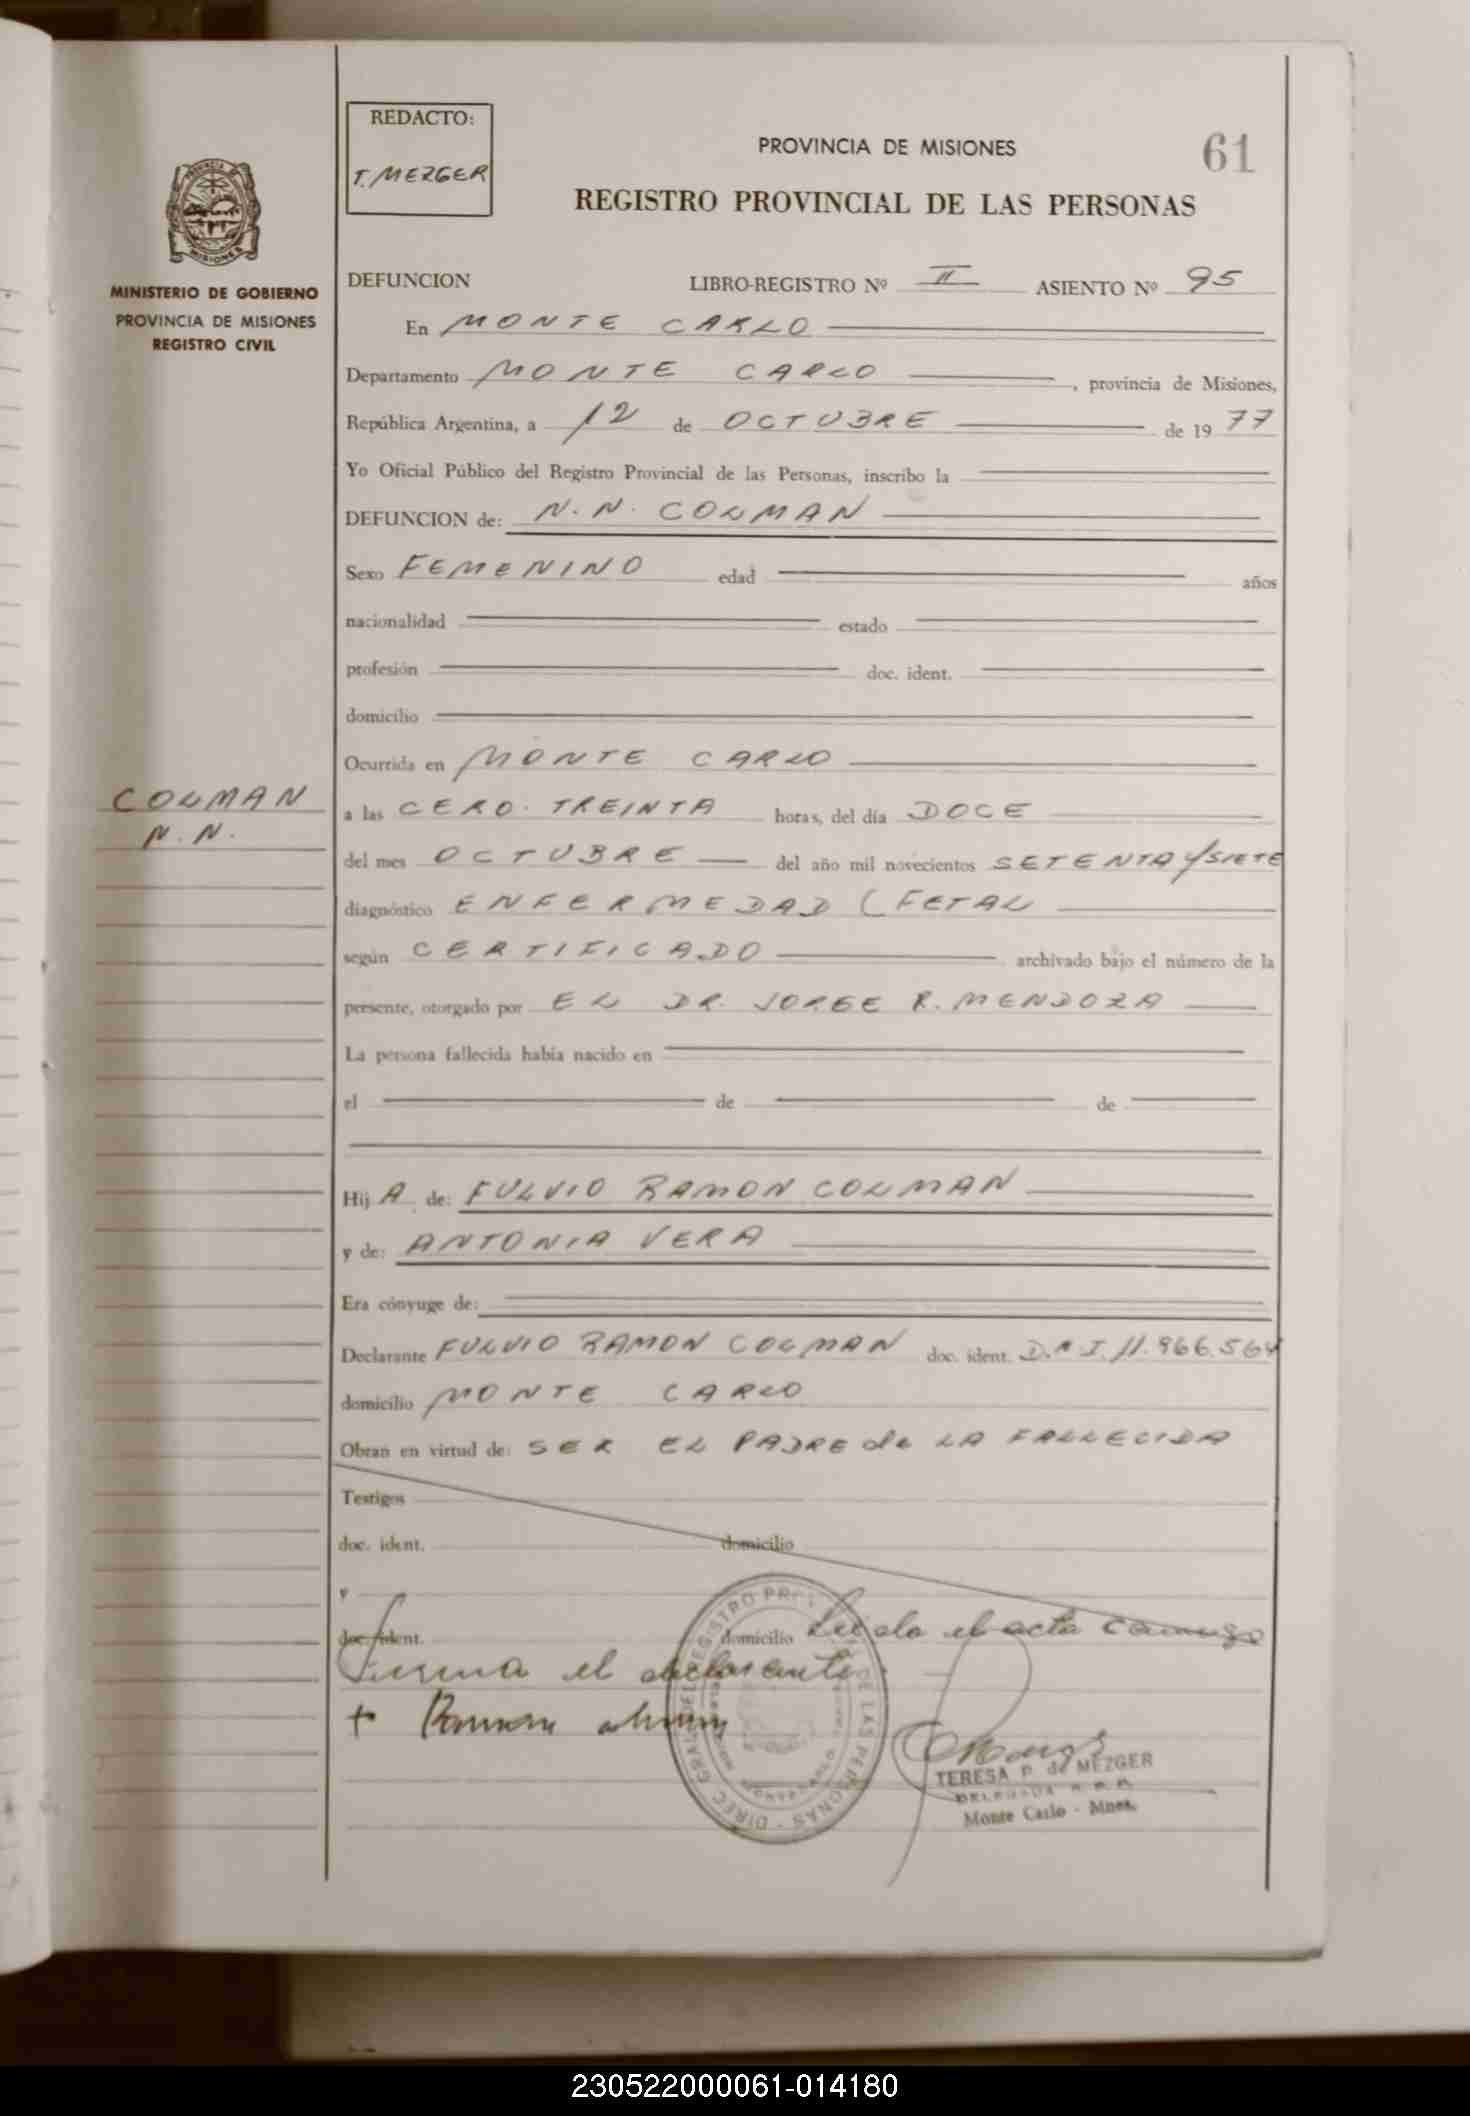 REDACTO:
T. MEZGER
PROVINCIA DE MISIONES
61
REGISTRO PROVINCIAL DE LAS PERSONAS
MINISTERIO DE GOBIERNO
PROVINCIA DE MISIONES
REGISTRO CIVIL
DEFUNCION LIBRO-REGISTRO Nº II ASIENTO Nº 95
En MONTE CARLO
Departamento MONTE CARLO, provincia de Misiones,
República Argentina, a 12 de OCTUBRE de 1977
Yo Oficial Público del Registro Provincial de las Personas, inscribo la
DEFUNCION de: N.N. COLMAN
Sexo FEMENINO edad años
nacionalidad estado
profesión doc. ident.
domicilio
Ocurrida en MONTE CARLO
COLMAN
N.N.
a las CERO. TREINTA horas, del día DOCE
del mes OCTUBRE del año mil novecientos SETENTA y SIETE
diagnóstico ENFERMEDAD (FETAL
según CERTIFICADO archivado bajo el número de la
presente, otorgado por EL DR. JORGE R. MENDOZA
La persona fallecida había nacido en
el de de
Hij A de: FULVIO RAMON COLMAN
y de: ANTONIA VERA
Era cónyuge de:
Declarante FULVIO RAMON COLMAN doc. ident. D.N.I. 11.966.564
domicilio MONTE CARLO
Obran en virtud de: SER EL PADRE de LA FALLECIDA
Testigos
doc. ident. domicilio
y
doc. ident. domicilio Leida el acta
Firma el declarante
+ Ramon
DIREC. GRAL. DEL REGISTRO PROV. DE LAS PERSONAS
TERESA P. de MEZGER
DELEGADA R.P.P.
Monte Carlo - Mnes.
230522000061-014180